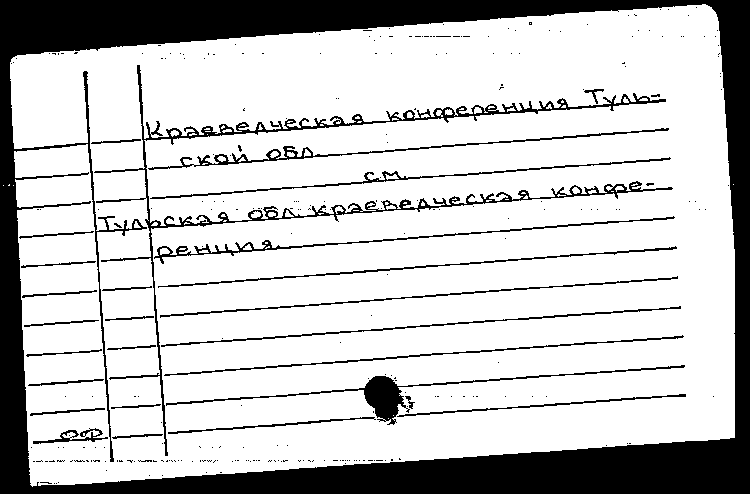 Краеведческая конференция Туль-
ской обл.
см.
Тульская обл. краеведческая конфе-
ренция.
ОФ